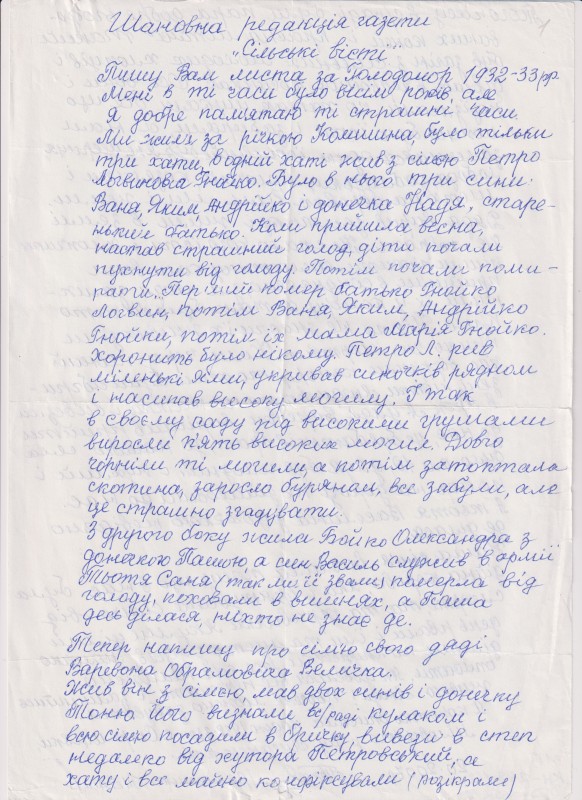 1
Шановна редакція газети
"Сільські вісті"
Пишу Вам листа за Голодомор 1932-33 рр
Мені в ті часи було вісім років, але
я добре памятаю ті страшні часи
Ми жили за річкою Комишна, було тільки
три хати, в одній хаті жив з сімєю Петро
Логвинович Гнойко. Було в нього три сини:
Ваня, Яким, Андрійко і донечка Надя, старе-
нький батько. Коли прийшла весна,
настав страшний голод, діти почали
пухнути від голоду. Потім почали поми-
рати. Перший помер батько Гнойко
Логвин, потім Ваня, Яким, Андрійко
Гнойки, потім їх мама Марія Гнойко.
Хоронить було нікому. Петро Л. рив
міленькі ями, укривав синочків рядном
і насипав високу могилу. І так
в своєму саду під високими грушами
виросли п'ять високих могил. Довго
чорніли ті могили, а потім затоптала
скотина, заросло буряном, все забули, але
це страшно згадувати.
З другого боку жила Бойко Олександра з
донечкою Пашою, а син Василь служив в армії
Тьотя Саня (так ми її звали) померла від
голоду, поховали в вишнях, а Паша
десь ділася, ніхто не знає де.
Тепер напишу про сімю свого дяді
Варевона Обрамовича Величка.
Жив він з сімєю, мав двох синів і донечку
Тоню Його визнали в с/раді кулаком і
всю сімю посадили в бричку, вивезли в степ
недалеко від хутора Петровський, се
хату і все майно конфіксували (розікрали)